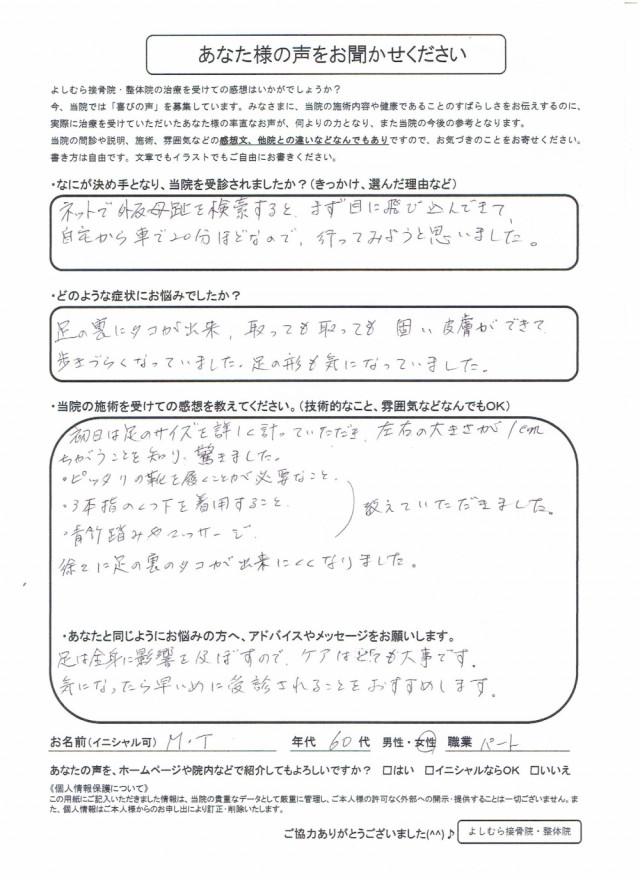 あなた様の声をお聞かせください
よしむら接骨院・整体院の治療を受けての感想はいかがでしょうか？
今、当院では「喜びの声」を募集しています。みなさまに、当院の施術内容や健康であることのすばらしさをお伝えするのに、
実際に治療を受けていただいたあなた様の率直なお声が、何よりの力となり、また当院の今後の参考となります。
当院の問診や説明、施術、雰囲気などの感想文、他院との違いなどなんでもありですので、お気づきのことをお寄せください。
書き方は自由です。文章でもイラストでもご自由にお書きください。
・なにが決め手となり、当院を受診されましたか？（きっかけ、選んだ理由など）
ネットで外反母趾を検索すると、まず目に飛び込んできて、
自宅から車で20分ほどなので、行ってみようと思いました。
・どのような症状にお悩みでしたか？
足の裏にタコが出来、取っても取っても固い皮膚ができて
歩きづらくなっていました。足の形も気になっていました。
・当院の施術を受けての感想を教えてください。（技術的なこと、雰囲気などなんでもOK）
初日は足のサイズを詳しく計っていただき、左右の大きさが1cm
ちがうことを知り、驚きました。
・ピッタリの靴を履くことが必要なこと、
・3本指のくつ下を着用すること、
・青竹踏みやマッサージ、
教えていただきました。
徐々に足の裏のタコが出来にくくなりました。
・あなたと同じようにお悩みの方へ、アドバイスやメッセージをお願いします。
足は全身に影響を及ぼすので、ケアはとても大事です。
気になったら早いめに受診されることをおすすめします。
お名前（イニシャル可） M・T 年代 60代 男性・女性 職業 パート
あなたの声を、ホームページや院内などで紹介してもよろしいですか？ □はい □イニシャルならOK □いいえ
《個人情報保護について》
この用紙にご記入いただきました情報は、当院の貴重なデータとして厳重に管理し、ご本人様の許可なく外部への開示・提供することは一切ございません。ま
た、個人情報はご本人様からのお申し出により訂正・削除いたします。
ご協力ありがとうございました(^^)♪ よしむら接骨院・整体院